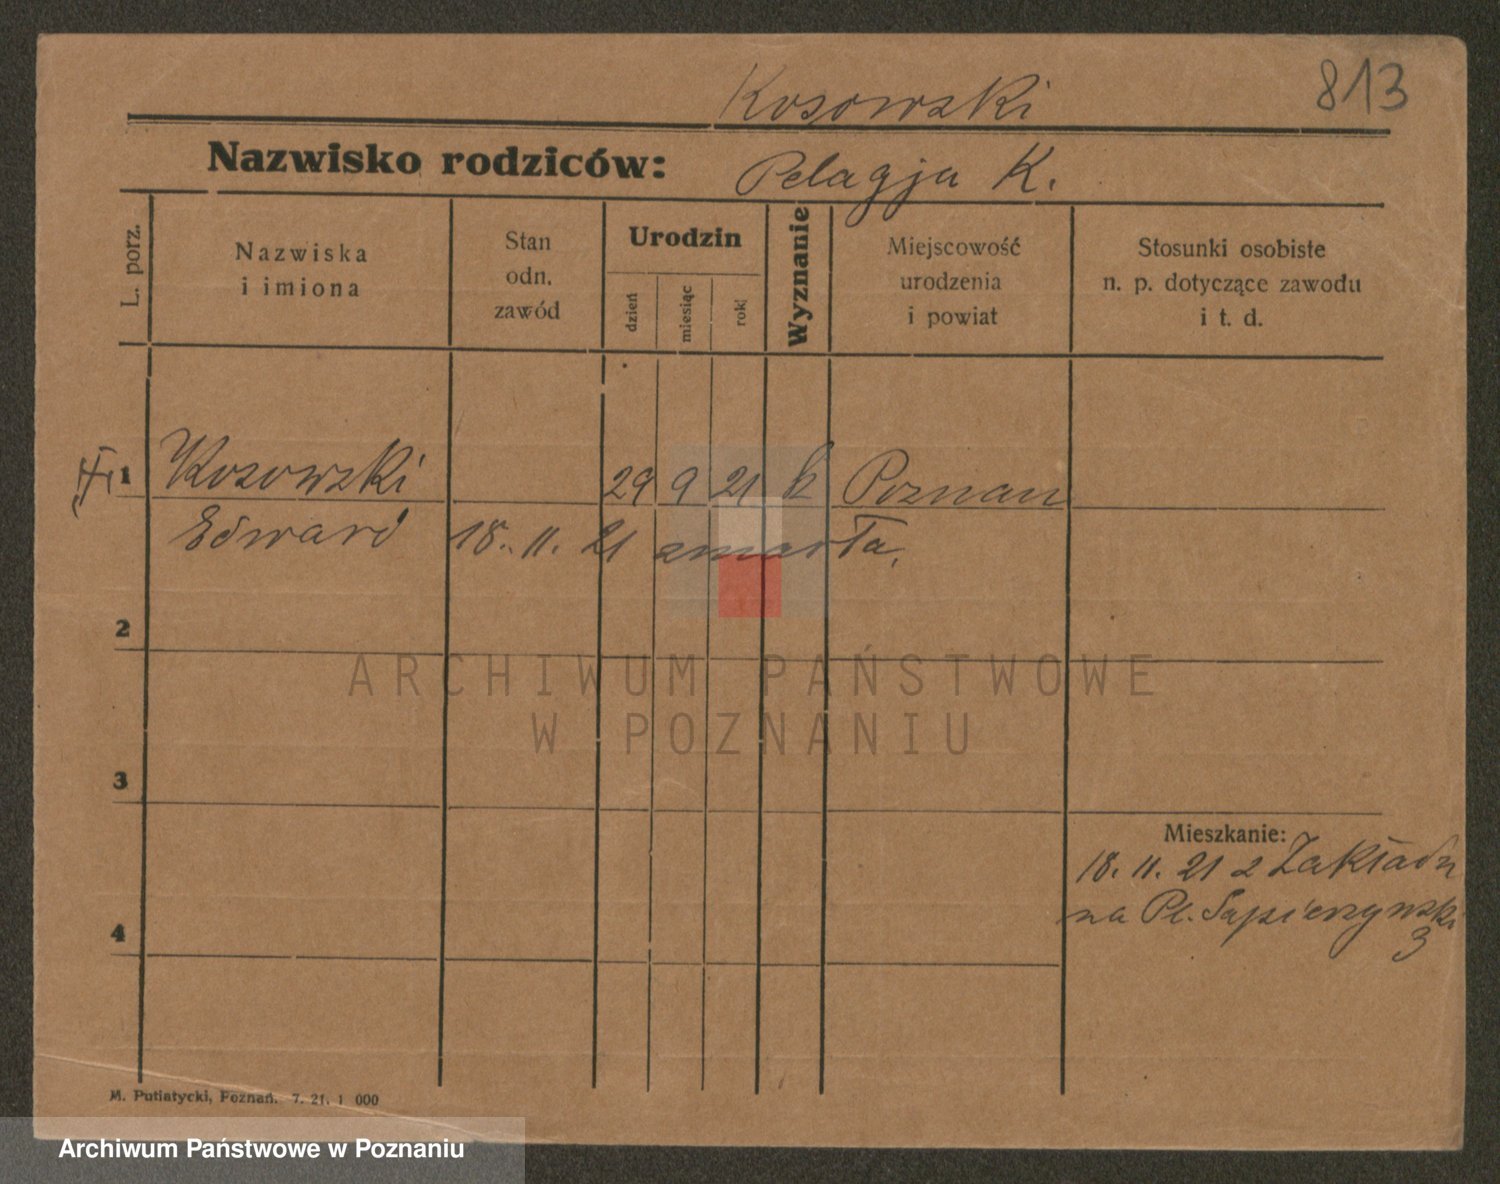 Kosowski
813
Nazwisko rodziców: Pelagja K.
L. porz.
Nazwiska
i imiona
Stan
odn.
zawód
Urodzin
dzień
miesiąc
rok
Wyznanie
Miejscowość
urodzenia
i powiat
Stosunki osobiste
n. p. dotyczące zawodu
i t. d.
1 Kosowski 29 9 21 k Poznan
Edward 18. 11. 21 zmarła.
2
ARCHIWUM PAŃSTWOWE
W POZNANIU
3
Mieszkanie:
18. 11. 21 z Zakładu
na Pl. Sapierzynski
3
4
M. Putiatycki, Poznań. 7. 21. 1 000
Archiwum Państwowe w Poznaniu